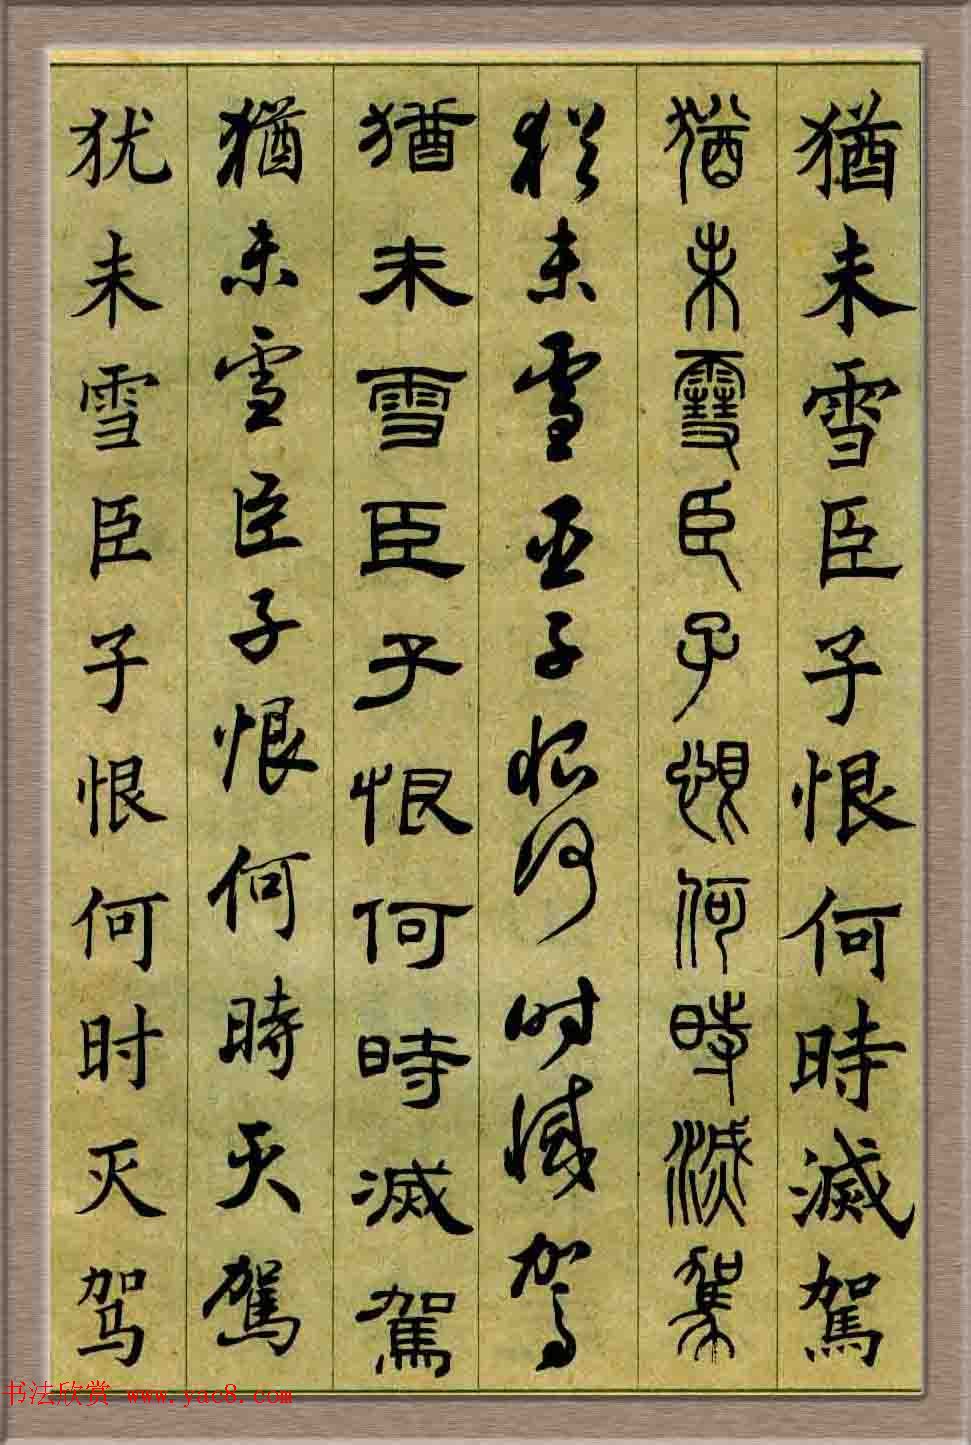 猶未雪臣子恨何時滅駕
猶未雪臣子恨何時滅駕
猶未雪臣子恨何时滅駕
猶未雪臣子恨何時滅駕
猶未雪臣子恨何時灭駕
犹未雪臣子恨何时灭驾
书法欣赏 www.yac8.com